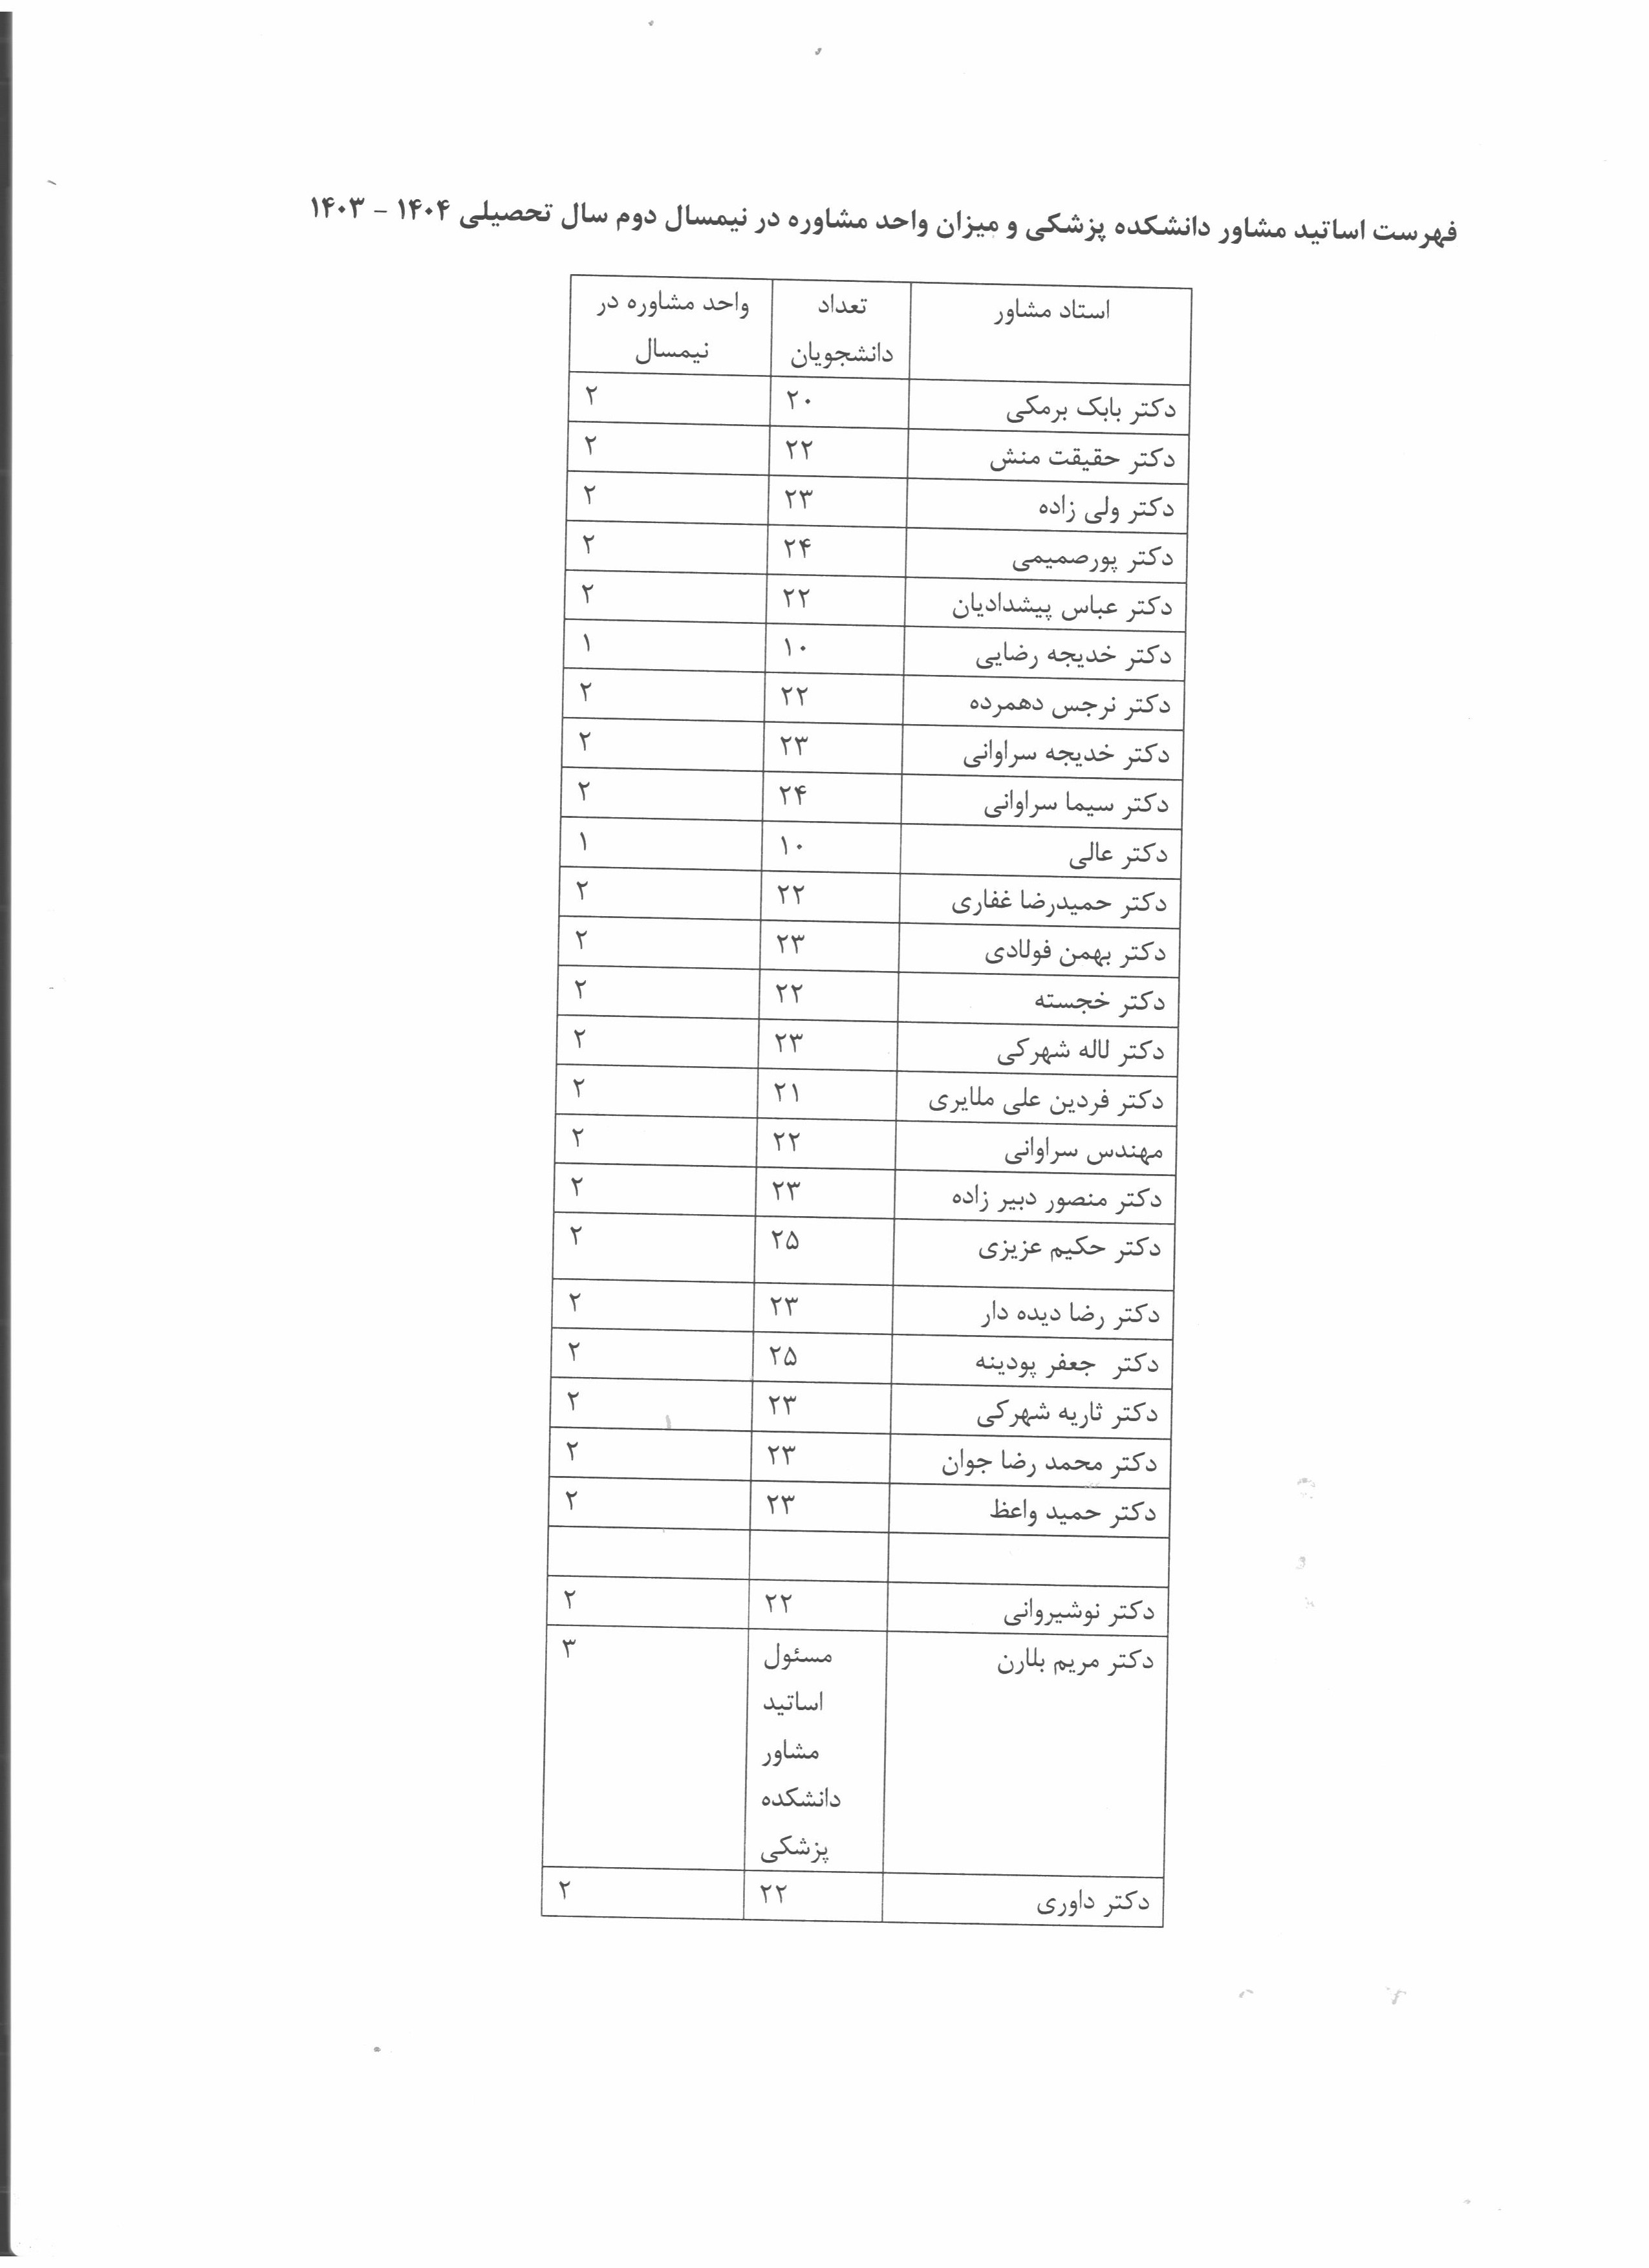 فهرست اساتید مشاور دانشکده پزشکی و میزان واحد مشاوره در نیمسال دوم سال تحصیلی ۱۴۰۴ – ۱۴۰۳
استاد مشاور تعداد دانشجویان واحد مشاوره در نیمسال
دکتر بابک برمکی ۲۰ ۲
دکتر حقیقت منش ۲۲ ۲
دکتر ولی زاده ۲۳ ۲
دکتر پورصمیمی ۲۴ ۲
دکتر عباس پیشدادیان ۲۲ ۲
دکتر خدیجه رضایی ۱۰ ۱
دکتر نرجس دهمرده ۲۲ ۲
دکتر خدیجه سراوانی ۲۳ ۲
دکتر سیما سراوانی ۲۴ ۲
دکتر عالی ۱۰ ۱
دکتر حمیدرضا غفاری ۲۲ ۲
دکتر بهمن فولادی ۲۳ ۲
دکتر خجسته ۲۲ ۲
دکتر لاله شهرکی ۲۳ ۲
دکتر فردین علی ملایری ۲۱ ۲
مهندس سراوانی ۲۲ ۲
دکتر منصور دبیر زاده ۲۳ ۲
دکتر حکیم عزیزی ۲۵ ۲
دکتر رضا دیده دار ۲۳ ۲
دکتر جعفر پودینه ۲۵ ۲
دکتر ثاریه شهرکی ۲۳ ۲
دکتر محمد رضا جوان ۲۳ ۲
دکتر حمید واعظ ۲۳ ۲
دکتر نوشیروانی ۲۲ ۲
دکتر مریم بلارن مسئول ۳
اساتید
مشاور
دانشکده
پزشکی
دکتر داوری ۲۲ ۲